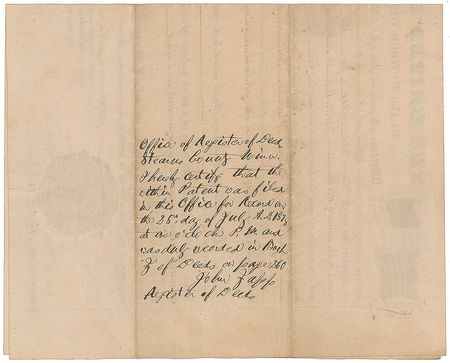 Office of Register of Deeds
Stearns County Minn.
I hereby certify that the
within Patent was filed
in this Office for Record on
the 25th day of July A.D. 187
at one o'clock P.M. and
was duly recorded in Book
"Z" of Deeds on page 260
John Zapp
Register of Deeds